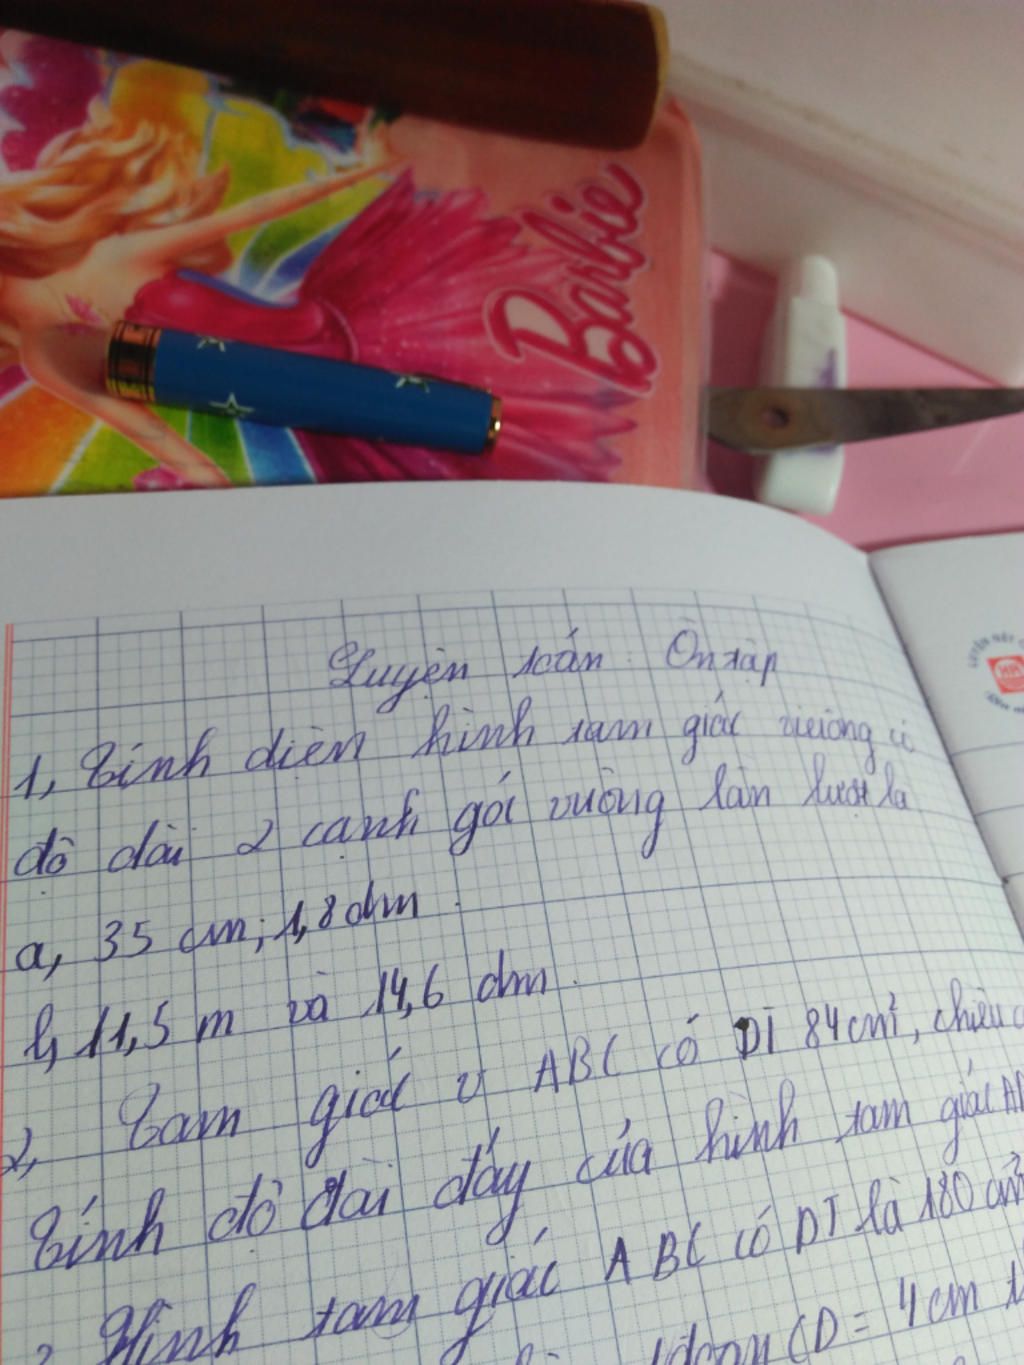 Barbie
Luyện toán: Ôn tập
1, Tính diện hình tam giác vuông có
độ dài 2 cạnh góc vuông lần lượt là
a, 35 cm; 1,8 dm.
b, 11,5 m và 14,6 dm.
2, Tam giác v ABC có DT 84 cm², chiều c
Tính độ dài đáy của hình tam giác AB
Hình tam giác ABC có DT là 180 cm²
CD = 4 cm t